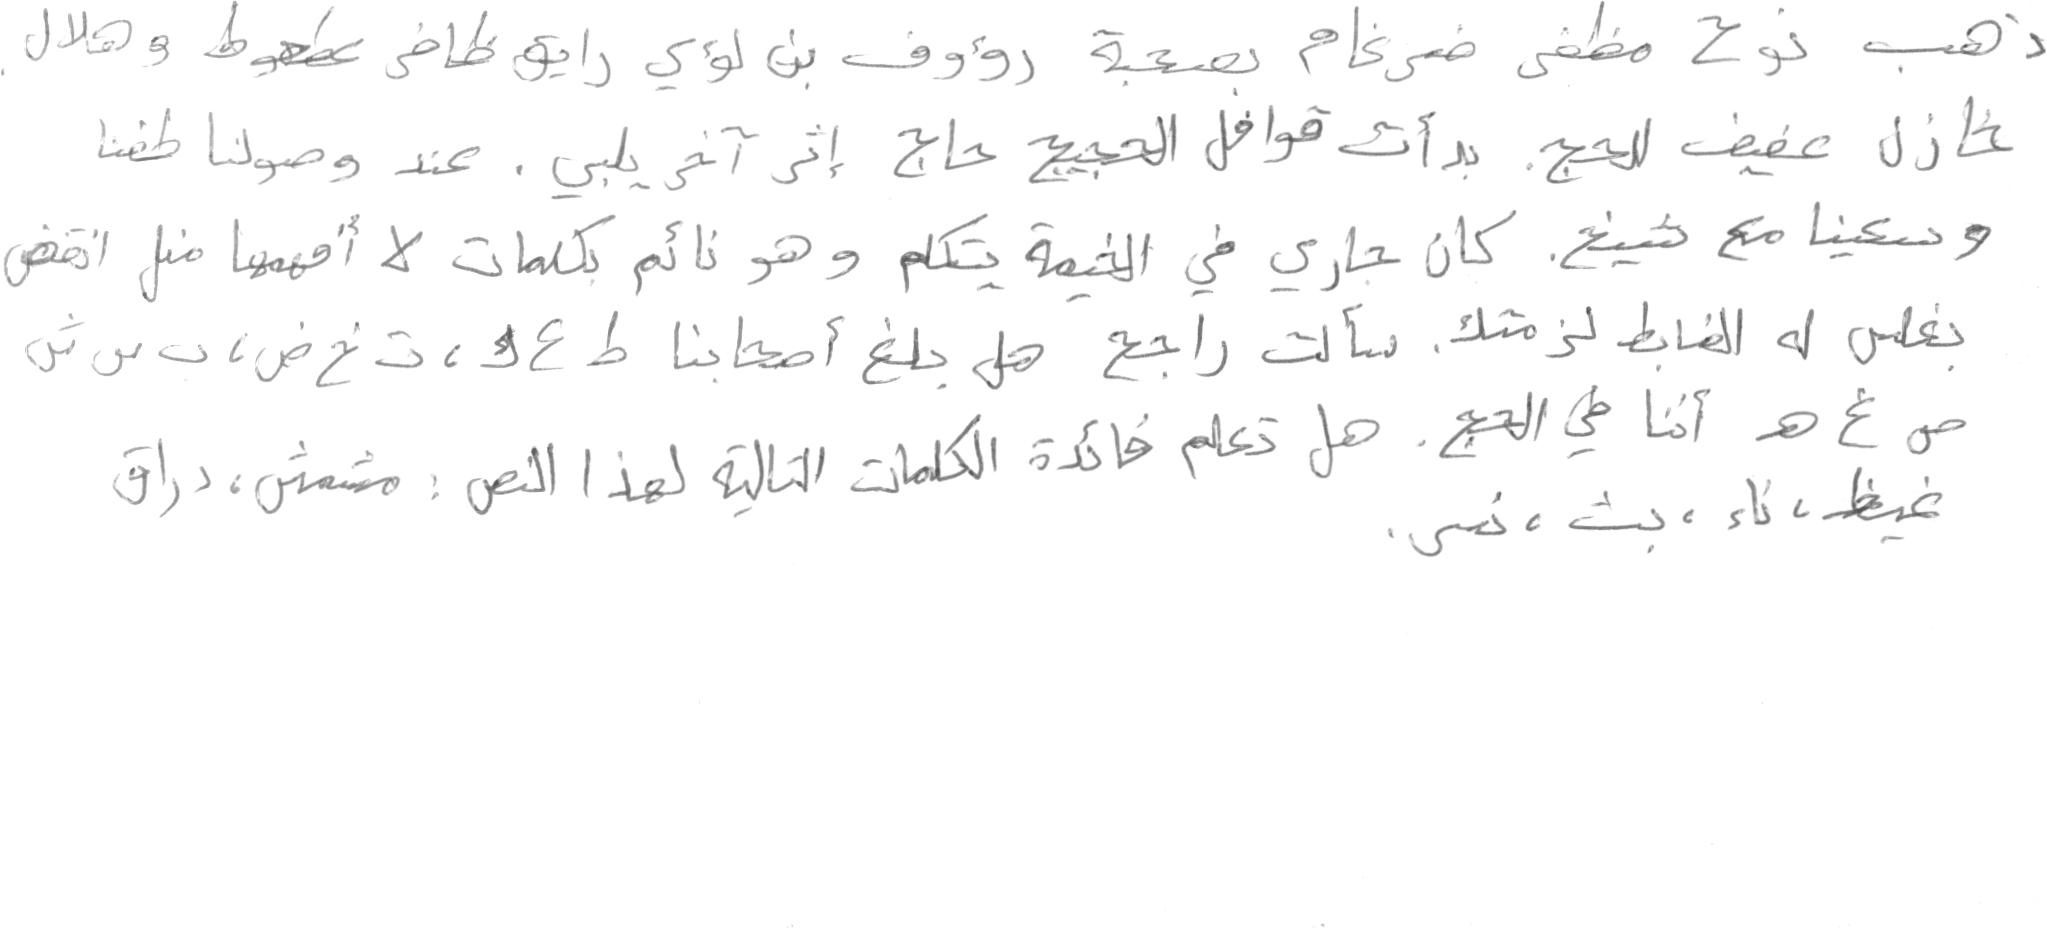 ذهب نوح مظفر ضرغام بصحبة رؤوف بن لؤي رايق ظافر عطعوط وهلال
خازل عفيف للحج. بدأت قوافل الحجيج حاج إثر آخر يلبي. عند وصولنا طفنا
وسعينا مع شيخ. كان جاري في الخيمة يتكلم وهو نائم بكلمات لا أفهمها مثل انقض
بغلس له الضابط لزمتك. سألت راجح هل بلغ أصحابنا ط ع ك، ث خ ض، ب س ش
ص غ هـ أننا في الحج. هل تعلم فائدة الكلمات التالية لهذا النص: مشمش، دراق
غيظ، ناء، بث، نمر.